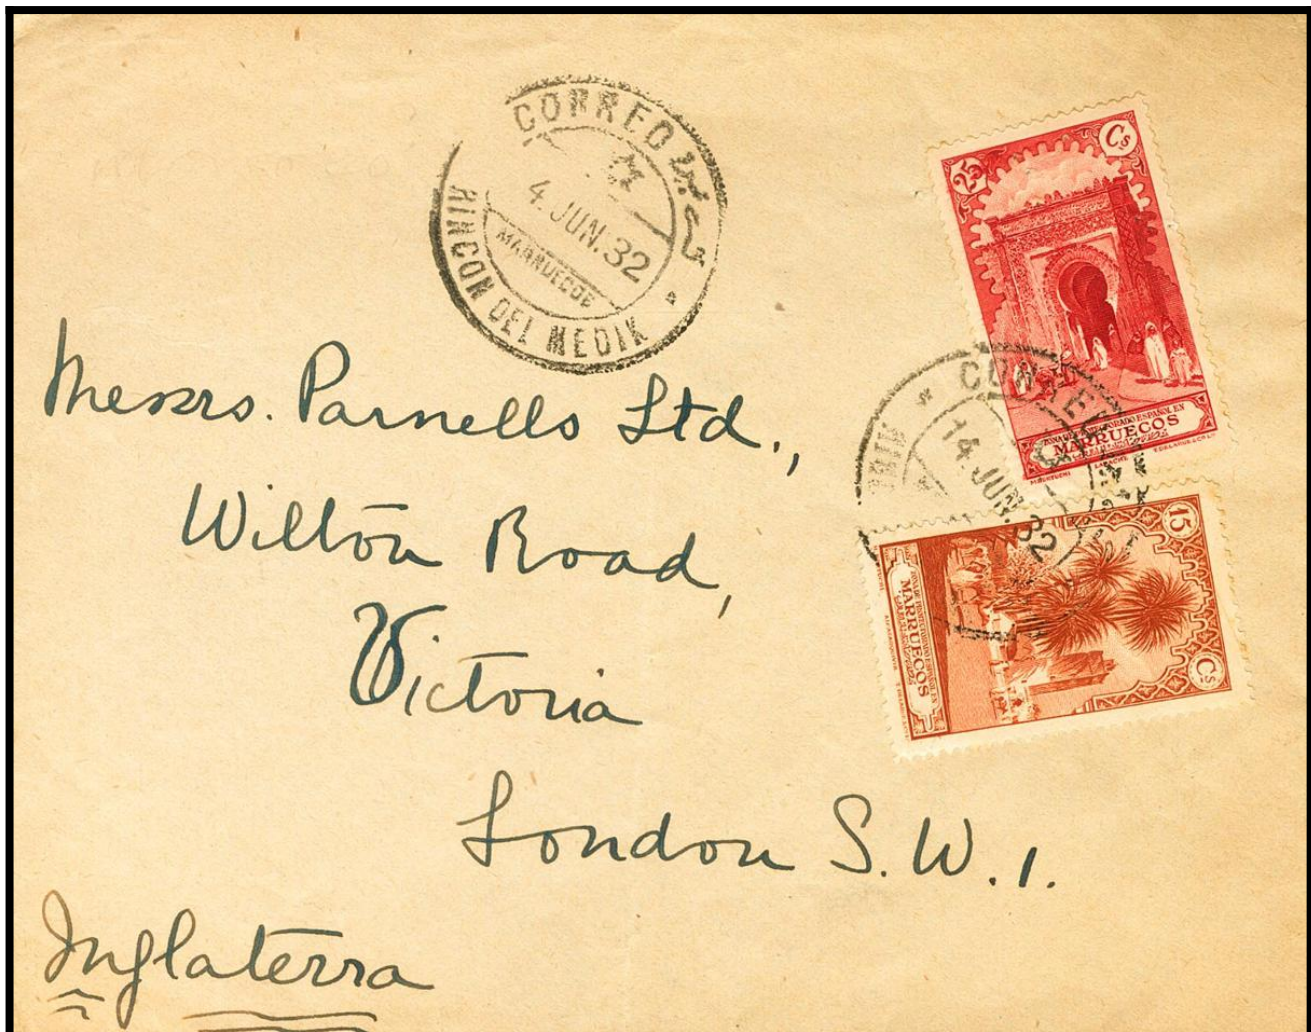 CORREO
4. JUN. 32
MARRUECOS
RINCON DEL MEDIK
25 Cs
MARRUECOS
14. JUN. 32
15 Cs
MARRUECOS
Messrs. Parnells Ltd.,
Wilton Road,
Victoria
London S.W.1.
Inglaterra